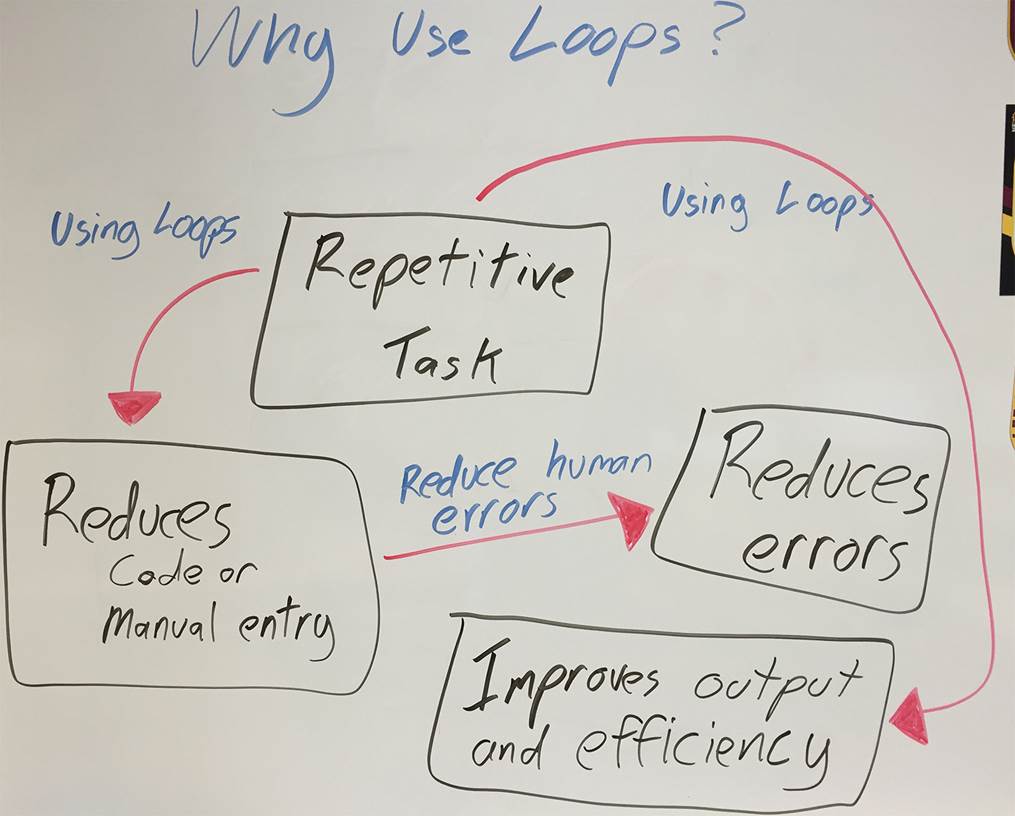 Why Use Loops?
Using Loops
Using Loops
Repetitive
Task
Reduces
Code or
Manual entry
Reduce human
errors
Reduces
errors
Improves output
and efficiency